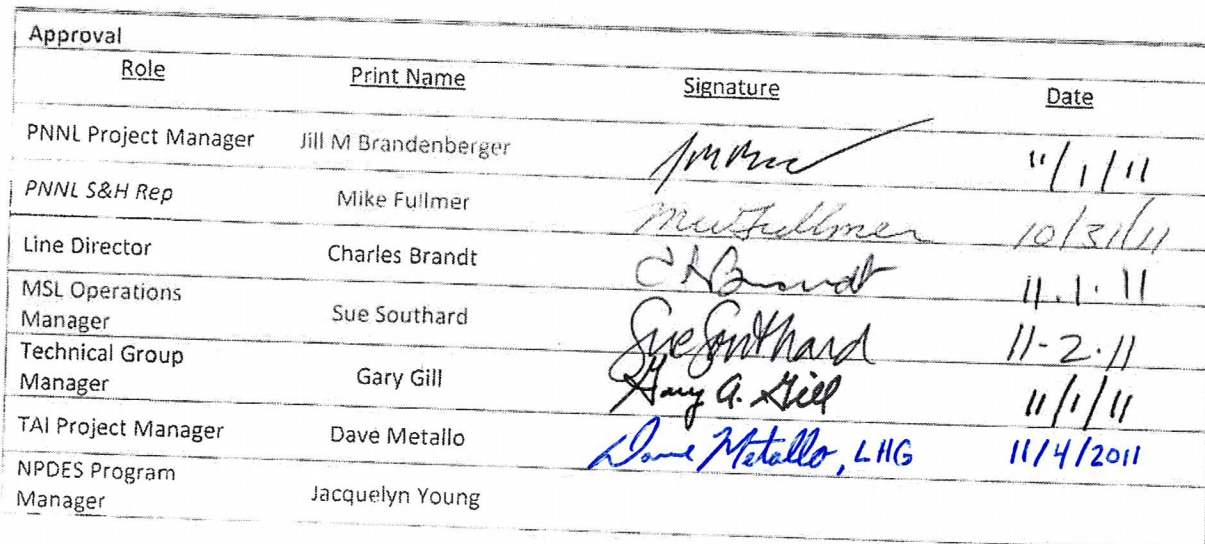 Approval
Role Print Name Signature Date
PNNL Project Manager Jill M Brandenberger 11/1/11
PNNL S&H Rep Mike Fullmer MWFullmer 10/31/11
Line Director Charles Brandt CABrandt 11.1.11
MSL Operations
Manager Sue Southard Sue Southard 11-2-11
Technical Group
Manager Gary Gill Gary A. Gill 11/1/11
TAI Project Manager Dave Metallo Dave Metallo, LHG 11/4/2011
NPDES Program
Manager Jacquelyn Young